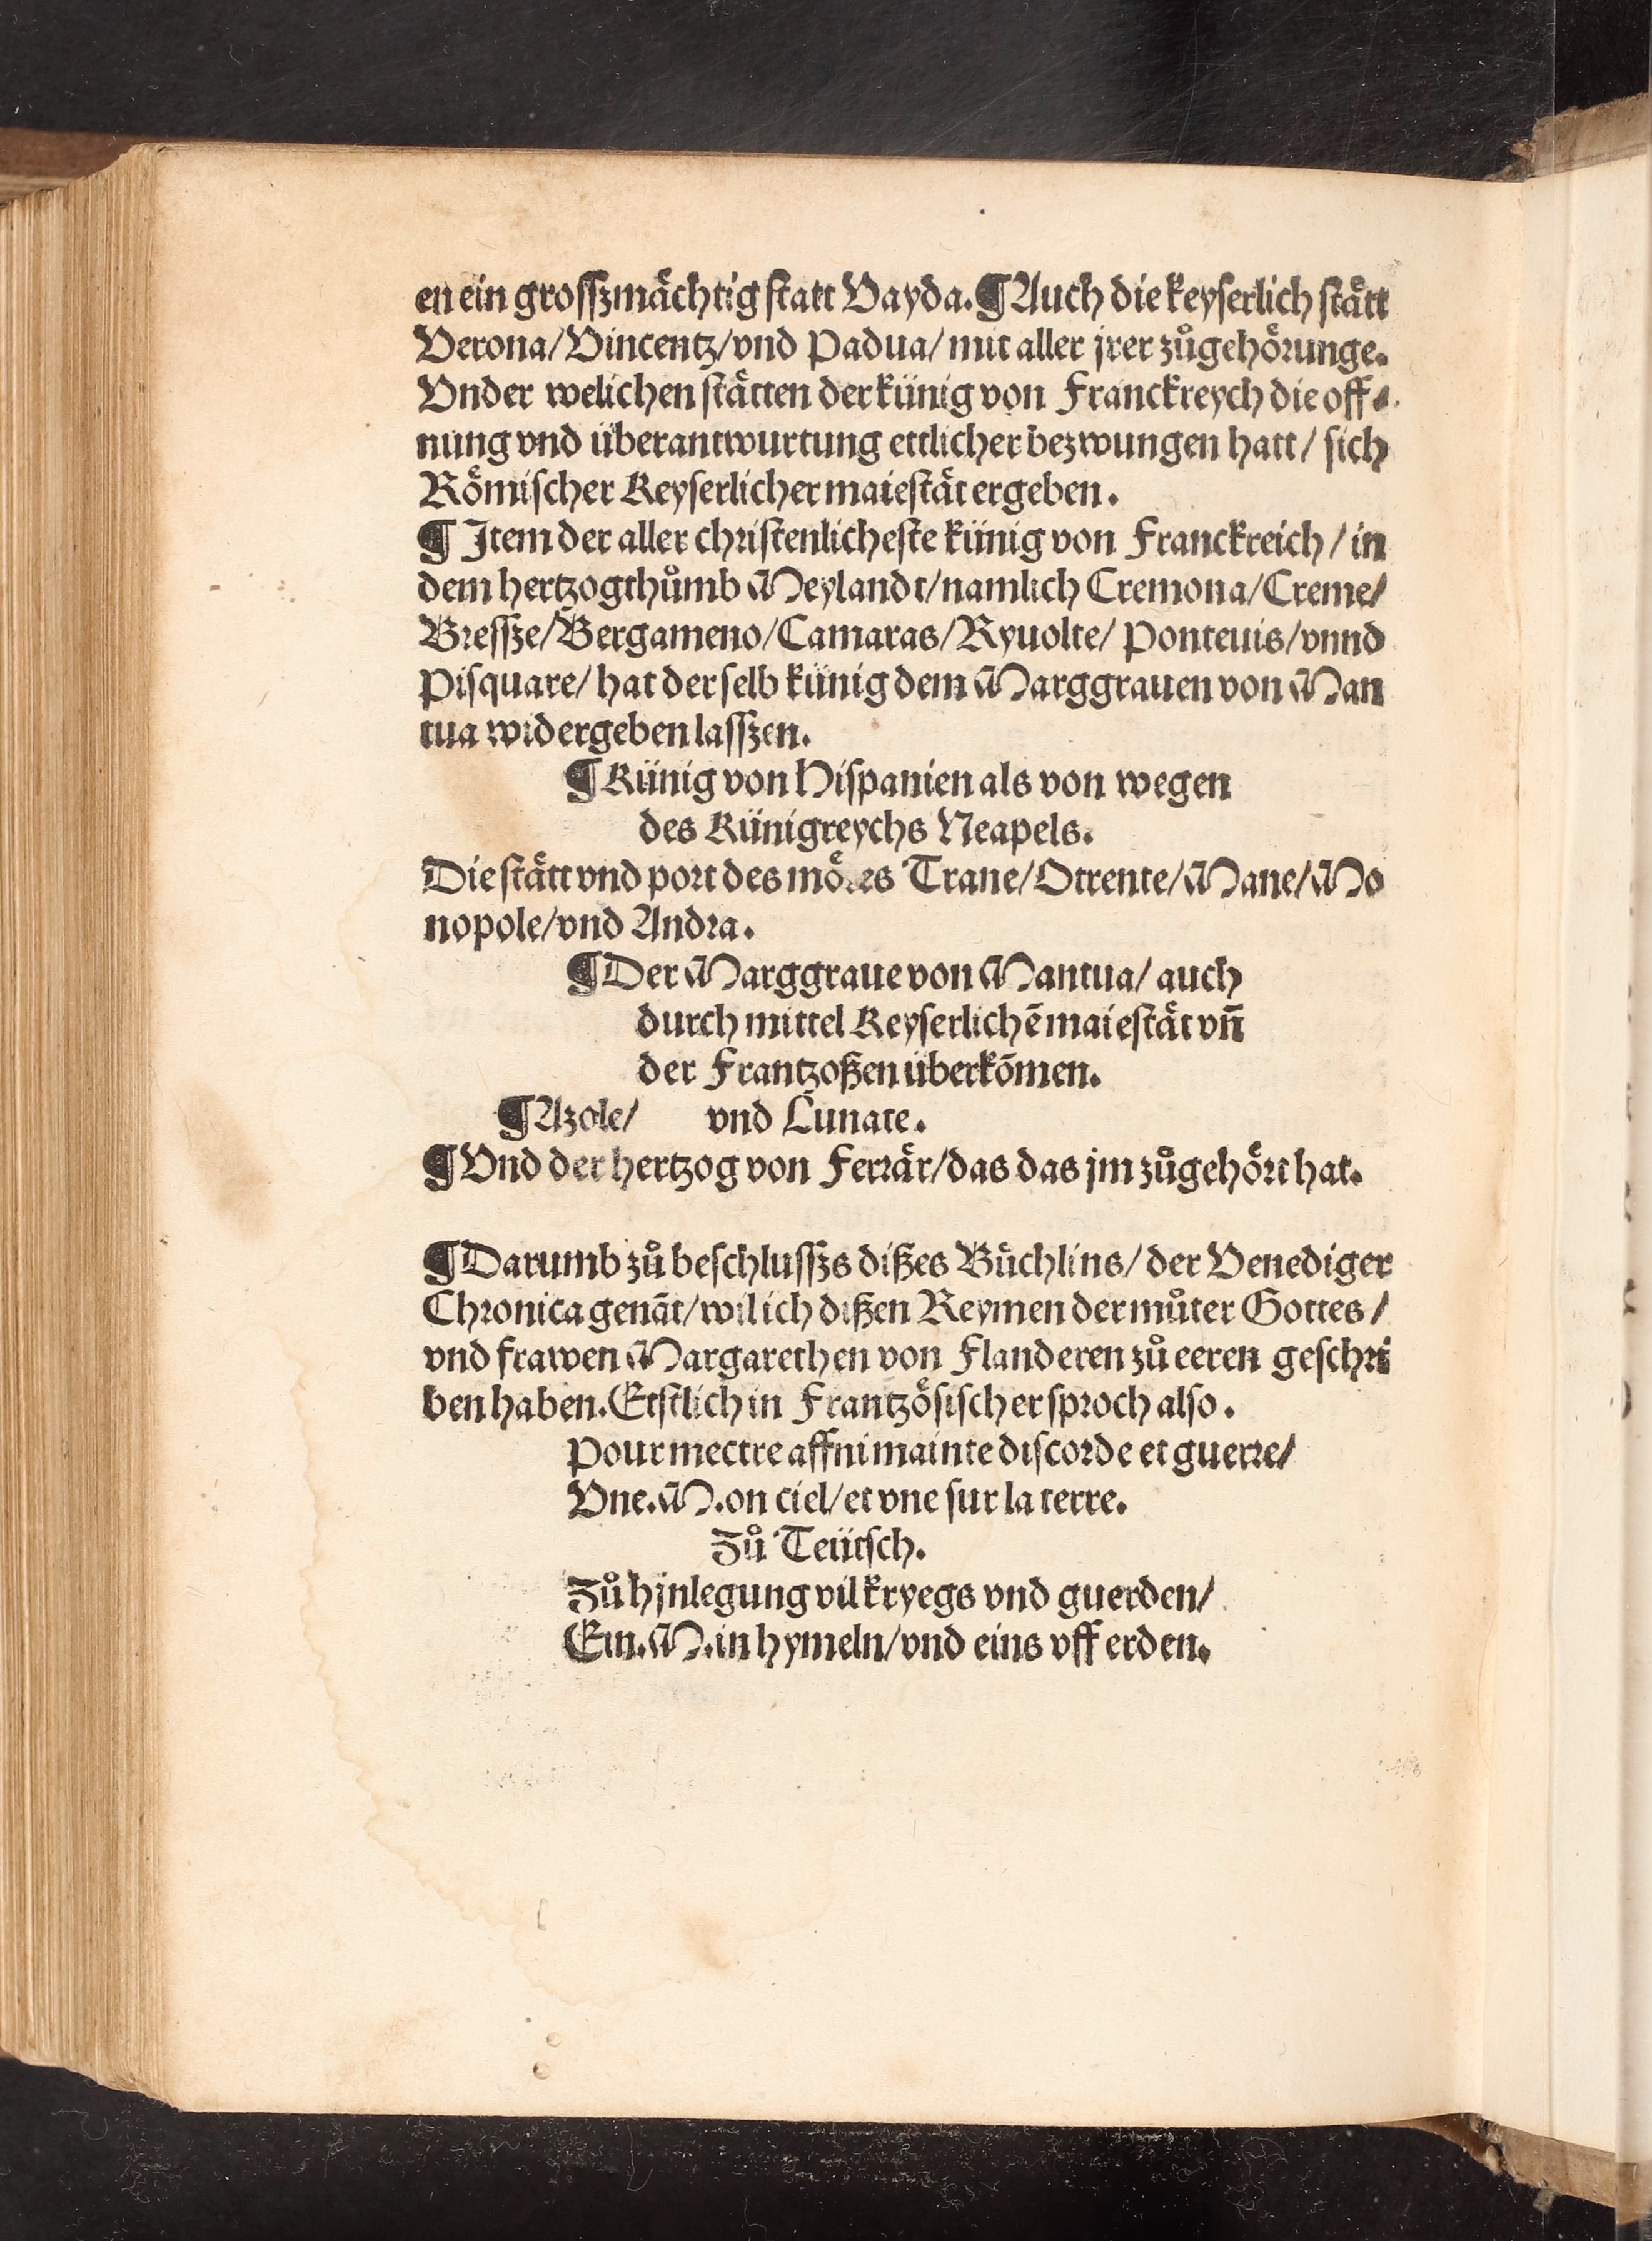 en ein grosſzmaͤchtig ſtatt Vayda. ¶ Auch die keyſerlich ſtaͤtt
Verona/Vincentz/vnd Padua/ mit aller jrer zuͦgehoͤrunge.
Vnder welichen ſtaͤtten der künig von Franckreych die off⸗
nung vnd überantwurtung ettlicher bezwungen hatt/ ſich
Roͤmiſcher Keyſerlicher maieſtaͤt ergeben.
¶ Item der aller chriſtenlicheſte künig von Franckreich/ in
dem hertzogthuͦmb Meylandt/namlich Cremona/Creme/
Breſſze/Bergameno/Camaras/Ryuolte/ Ponteuis/vnnd
Piſquare/ hat der ſelb künig dem Marggrauen von Man
tua widergeben laſſzen.
¶ Künig von Hiſpanien als von wegen
des Künigreychs Neapels.
Die ſtaͤtt vnd port des Trane/Otrente/Mane/Mo
nopole/vnd Andra.
¶ Der Marggraue von Mantua/ auch
durch mittel Keyſerlichẽ maieſtaͤt vñ
der Frantzoßen überkõmen.
¶ Azole/ vnd Lunate.
¶ Vnd der hertzog von Ferraͤr/das das jm zuͦgehoͤrt hat.
¶ Darumb zuͦ beſchluſſzs dißes Buͤchlins/ der Venediger
Chronica genãt/wil ich dißen Reymen der muͦter Gottes/
vnd frawen Margarethen von Flanderen zuͦ eeren geſchri
ben haben. Erſtlich in Frantzoͤſiſcher ſproch alſo.
Pour mectre affni mainte diſcorde et guerre/
Vne .M. on ciel/et vne ſur la terre.
Zuͦ Teütſch.
Zuͦ hjnlegung vil kryegs vnd guerden/
Ein .M. in hymeln/vnd eins vff erden.